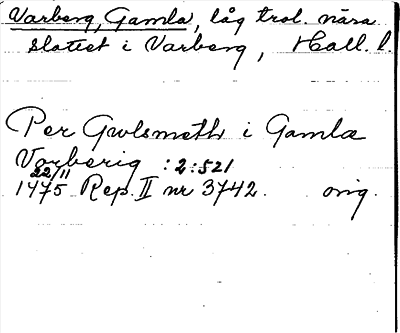 Varberg, Gamla, låg trol. nära
slottet i Varberg, Hall. l.
Per Gwlsmeth i Gamla
Varberig :2:521
22/11
1475 Rep. II nr 3742. orig.